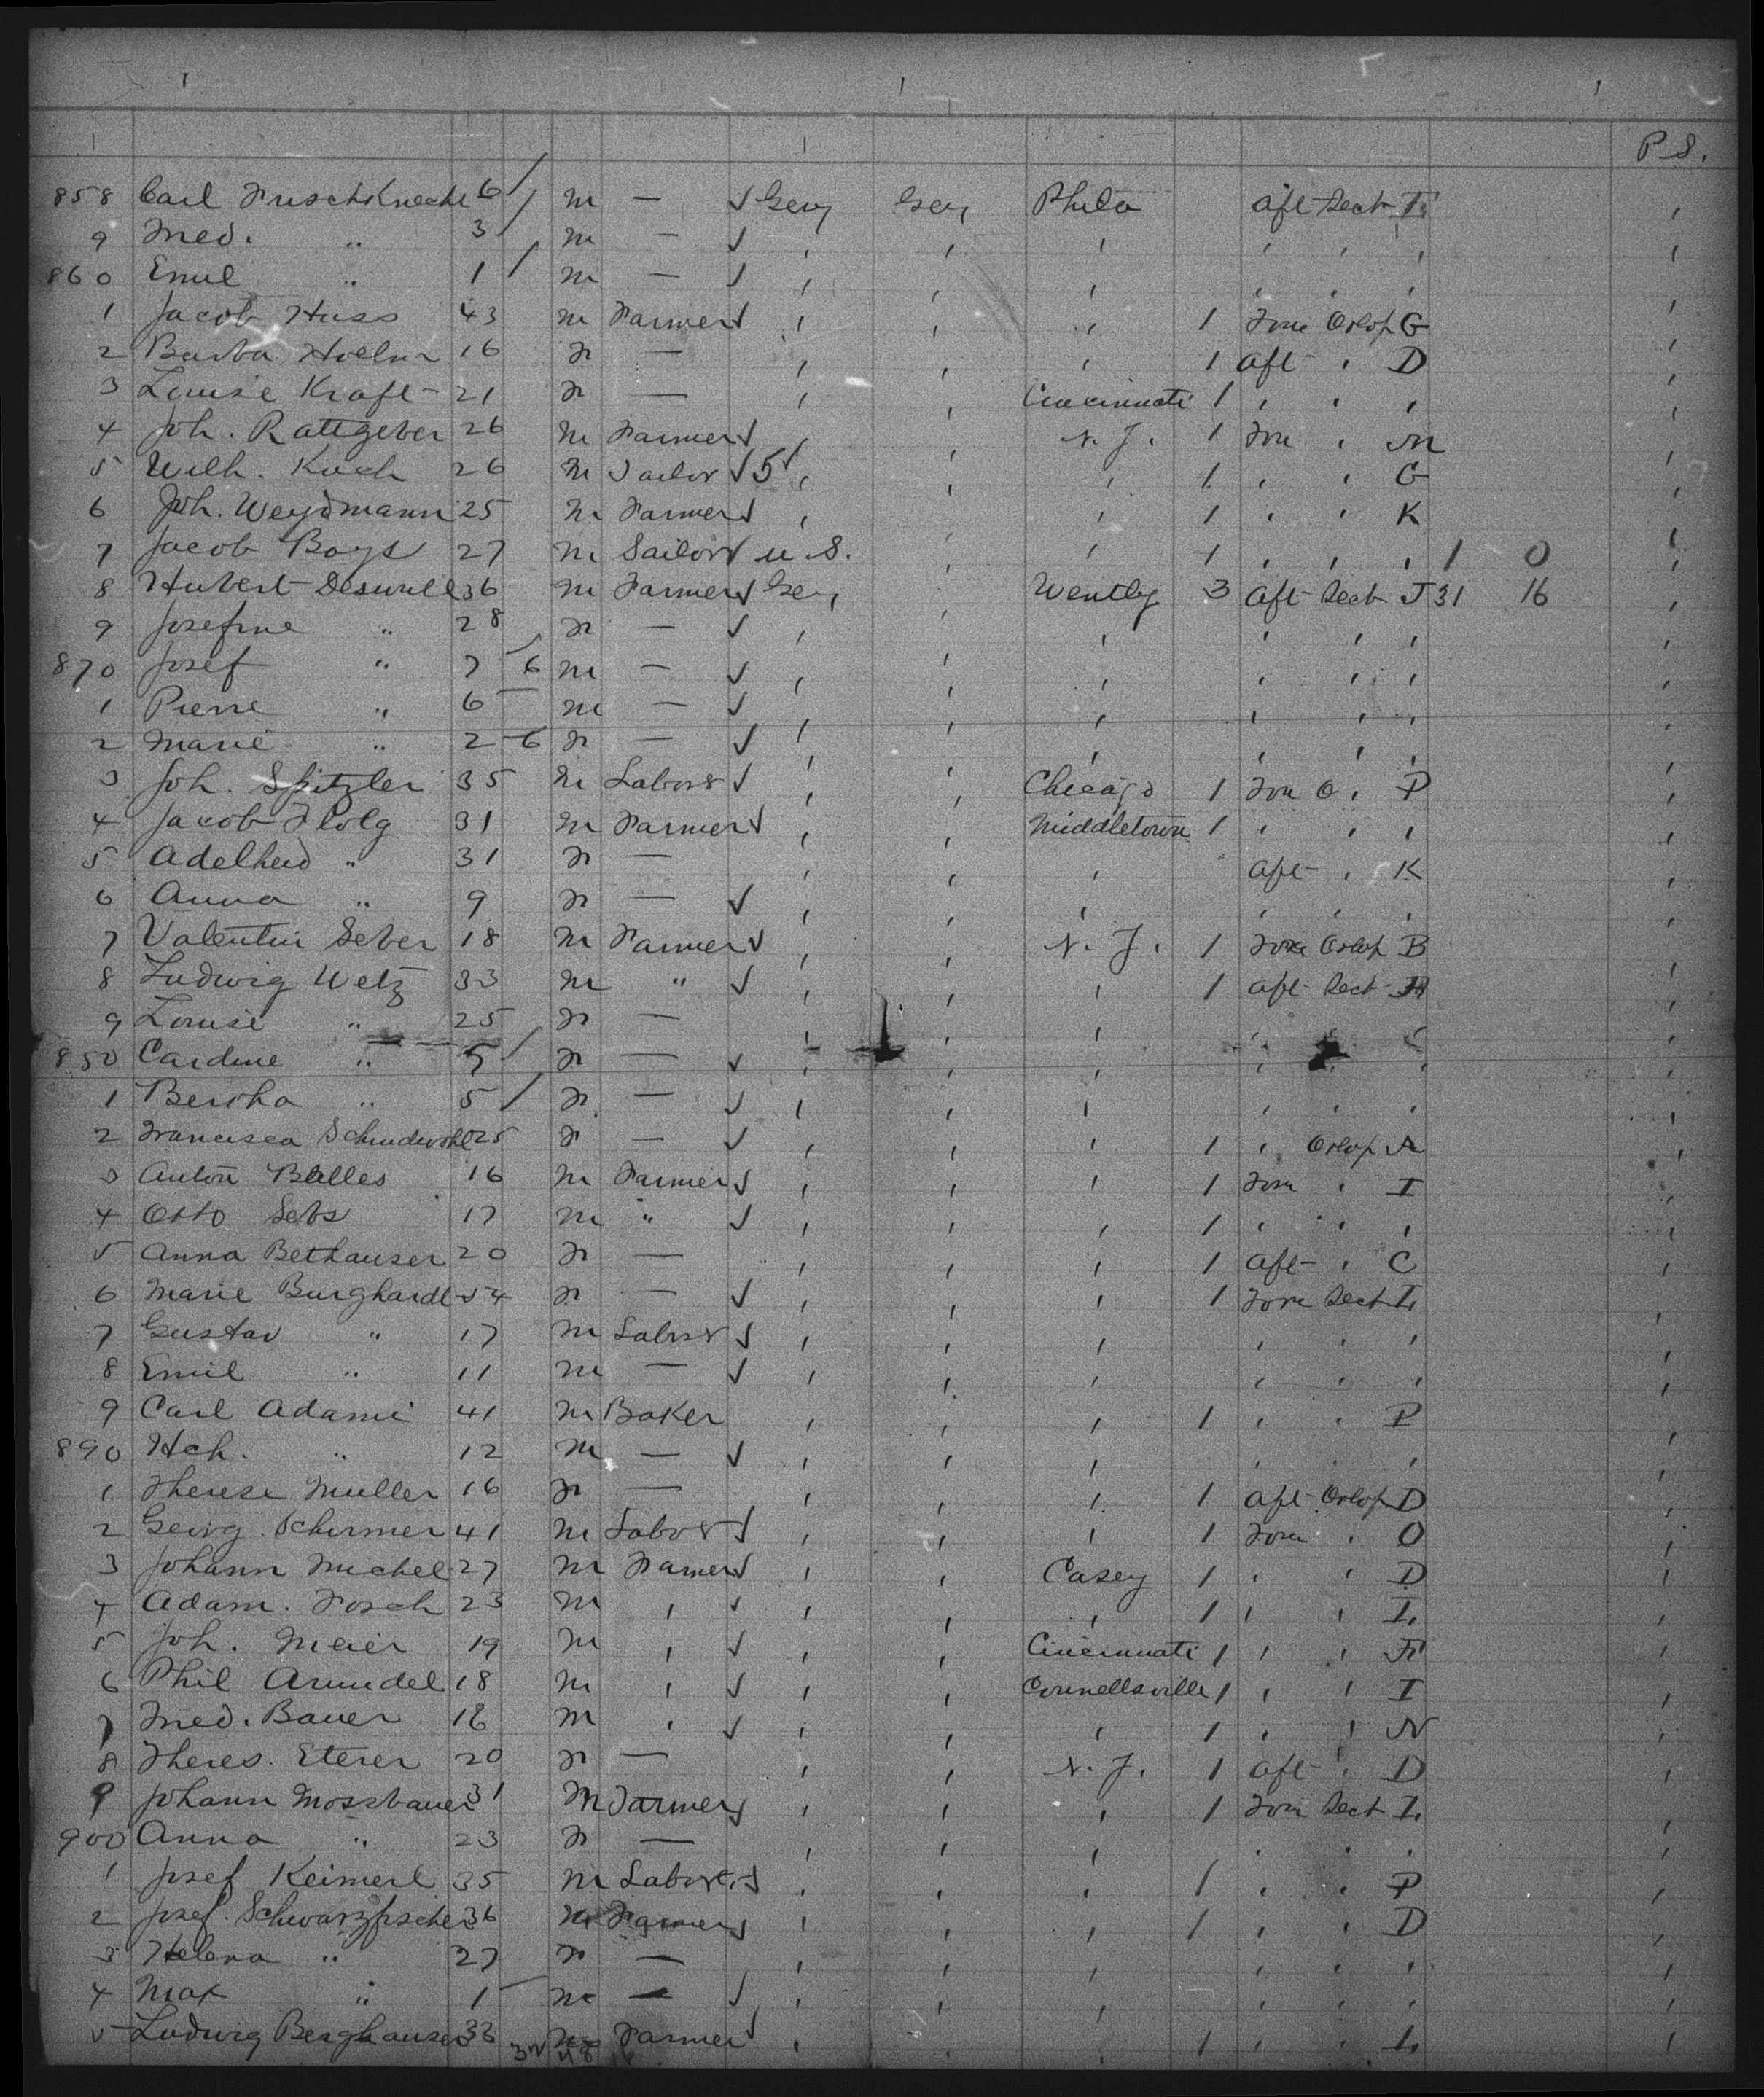 P. S.
858 Carl Frischknecht 6 / m — √ Gery Gery Phila Aft Sect I ,
9 Fred. " 3 / m — √ , , , , , , ,
860 Emil " 1 / m — √ , , , , , , ,
1 Jacob Huss 43 m Farmer √ , , , 1 Fore Orlop G ,
2 Barba 16 f — , , , 1 Aft , D ,
3 Louise Kraft 21 f — , , Cincinnati 1 , , , ,
4 Joh. Rattgeber 26 m Farmer √ , , N. J. 1 Fore , M ,
5 Wilh. Koch 26 m Tailor √ 5 √ , , , 1 , , G ,
6 Joh. Weydmann 25 m Farmer √ , , , 1 , , K ,
7 Jacob Boys 27 m Sailor √ U. S. , , 1 , , , 1 0 ,
8 Hubert 36 m Farmer √ Ger, Wently 3 Aft Sect J 31 16 ,
9 Josefine " 28 f — √ , , , , , ,
870 Josef " 7 6 m — √ , , , , , , ,
1 Pierre " 6 m — √ , , , , , , ,
2 Marie " 2 6 f — √ , , , , , , ,
3 Joh. Spitzler 35 m Labor √ , , Chicago 1 Fore O. P ,
4 Jacob 31 m Farmer √ , , Middletown 1 , , , ,
5 Adelheid " 31 f — , , , Aft , K ,
6 Anna " 9 f — √ , , , , , , ,
7 Valentin Seber 18 m Farmer √ , , N. J. 1 Fore Orlop B ,
8 Ludwig Wetz 33 m " √ , , , 1 Aft Sect ,
9 Louise " 25 f — , , , , ,
880 Caroline " 5 / f — √ , , , , , ,
1 Bertha " 5 / f — √ , , , , , , ,
2 Francisca 25 f — √ , , , 1 , Orlop A ,
3 Anton Balles 16 m Farmer √ , , , 1 Fore , I ,
4 Otto Sebs 17 m " √ , , , 1 , , , ,
5 Anna Bethauser 20 f — , , , 1 Aft , C ,
6 Marie Burghardt 54 f — √ , , , 1 Fore Sect L ,
7 Gustav " 17 m Labor √ , , , , , , ,
8 Emil " 11 m — √ , , , , , , ,
9 Carl Adami 41 m Baker , , , 1 , , P ,
890 Hch. " 12 m — √ , , , , , , ,
1 Therese Muller 16 f — , , , 1 Aft Orlop D ,
2 Georg. Schirmer 41 m Labor √ , , , 1 Fore , O ,
3 Johann Michel 27 m Framer √ , , Casey 1 , , D ,
4 Adam. Forch 23 m , √ , , , 1 , , L ,
5 Joh. Meier 19 m , √ , , Cincinnati 1 , , ,
6 Phil Arundel 18 m , √ , , Connellsville 1 , , I ,
7 Fred. Bauer 18 m , √ , , , 1 , , N ,
8 Theres. Eterer 20 f — , , N. J. 1 Aft , D ,
9 Johann Mossbauer 31 m Farmer √ , , , 1 Fore Sect L ,
900 Anna " 23 f — , , , , , , ,
1 Josef Keimerl 35 m Labor √ , , , 1 , , P ,
2 Josef. Schwarzfischer 36 m Farmer √ , , , 1 , , D ,
3 Helena " 27 f — , , , , , , ,
4 Max " 1 m — √ , , , , , , ,
5 Ludwig Berghauser 33 m Farmer √ , , , 1 , , L ,
48